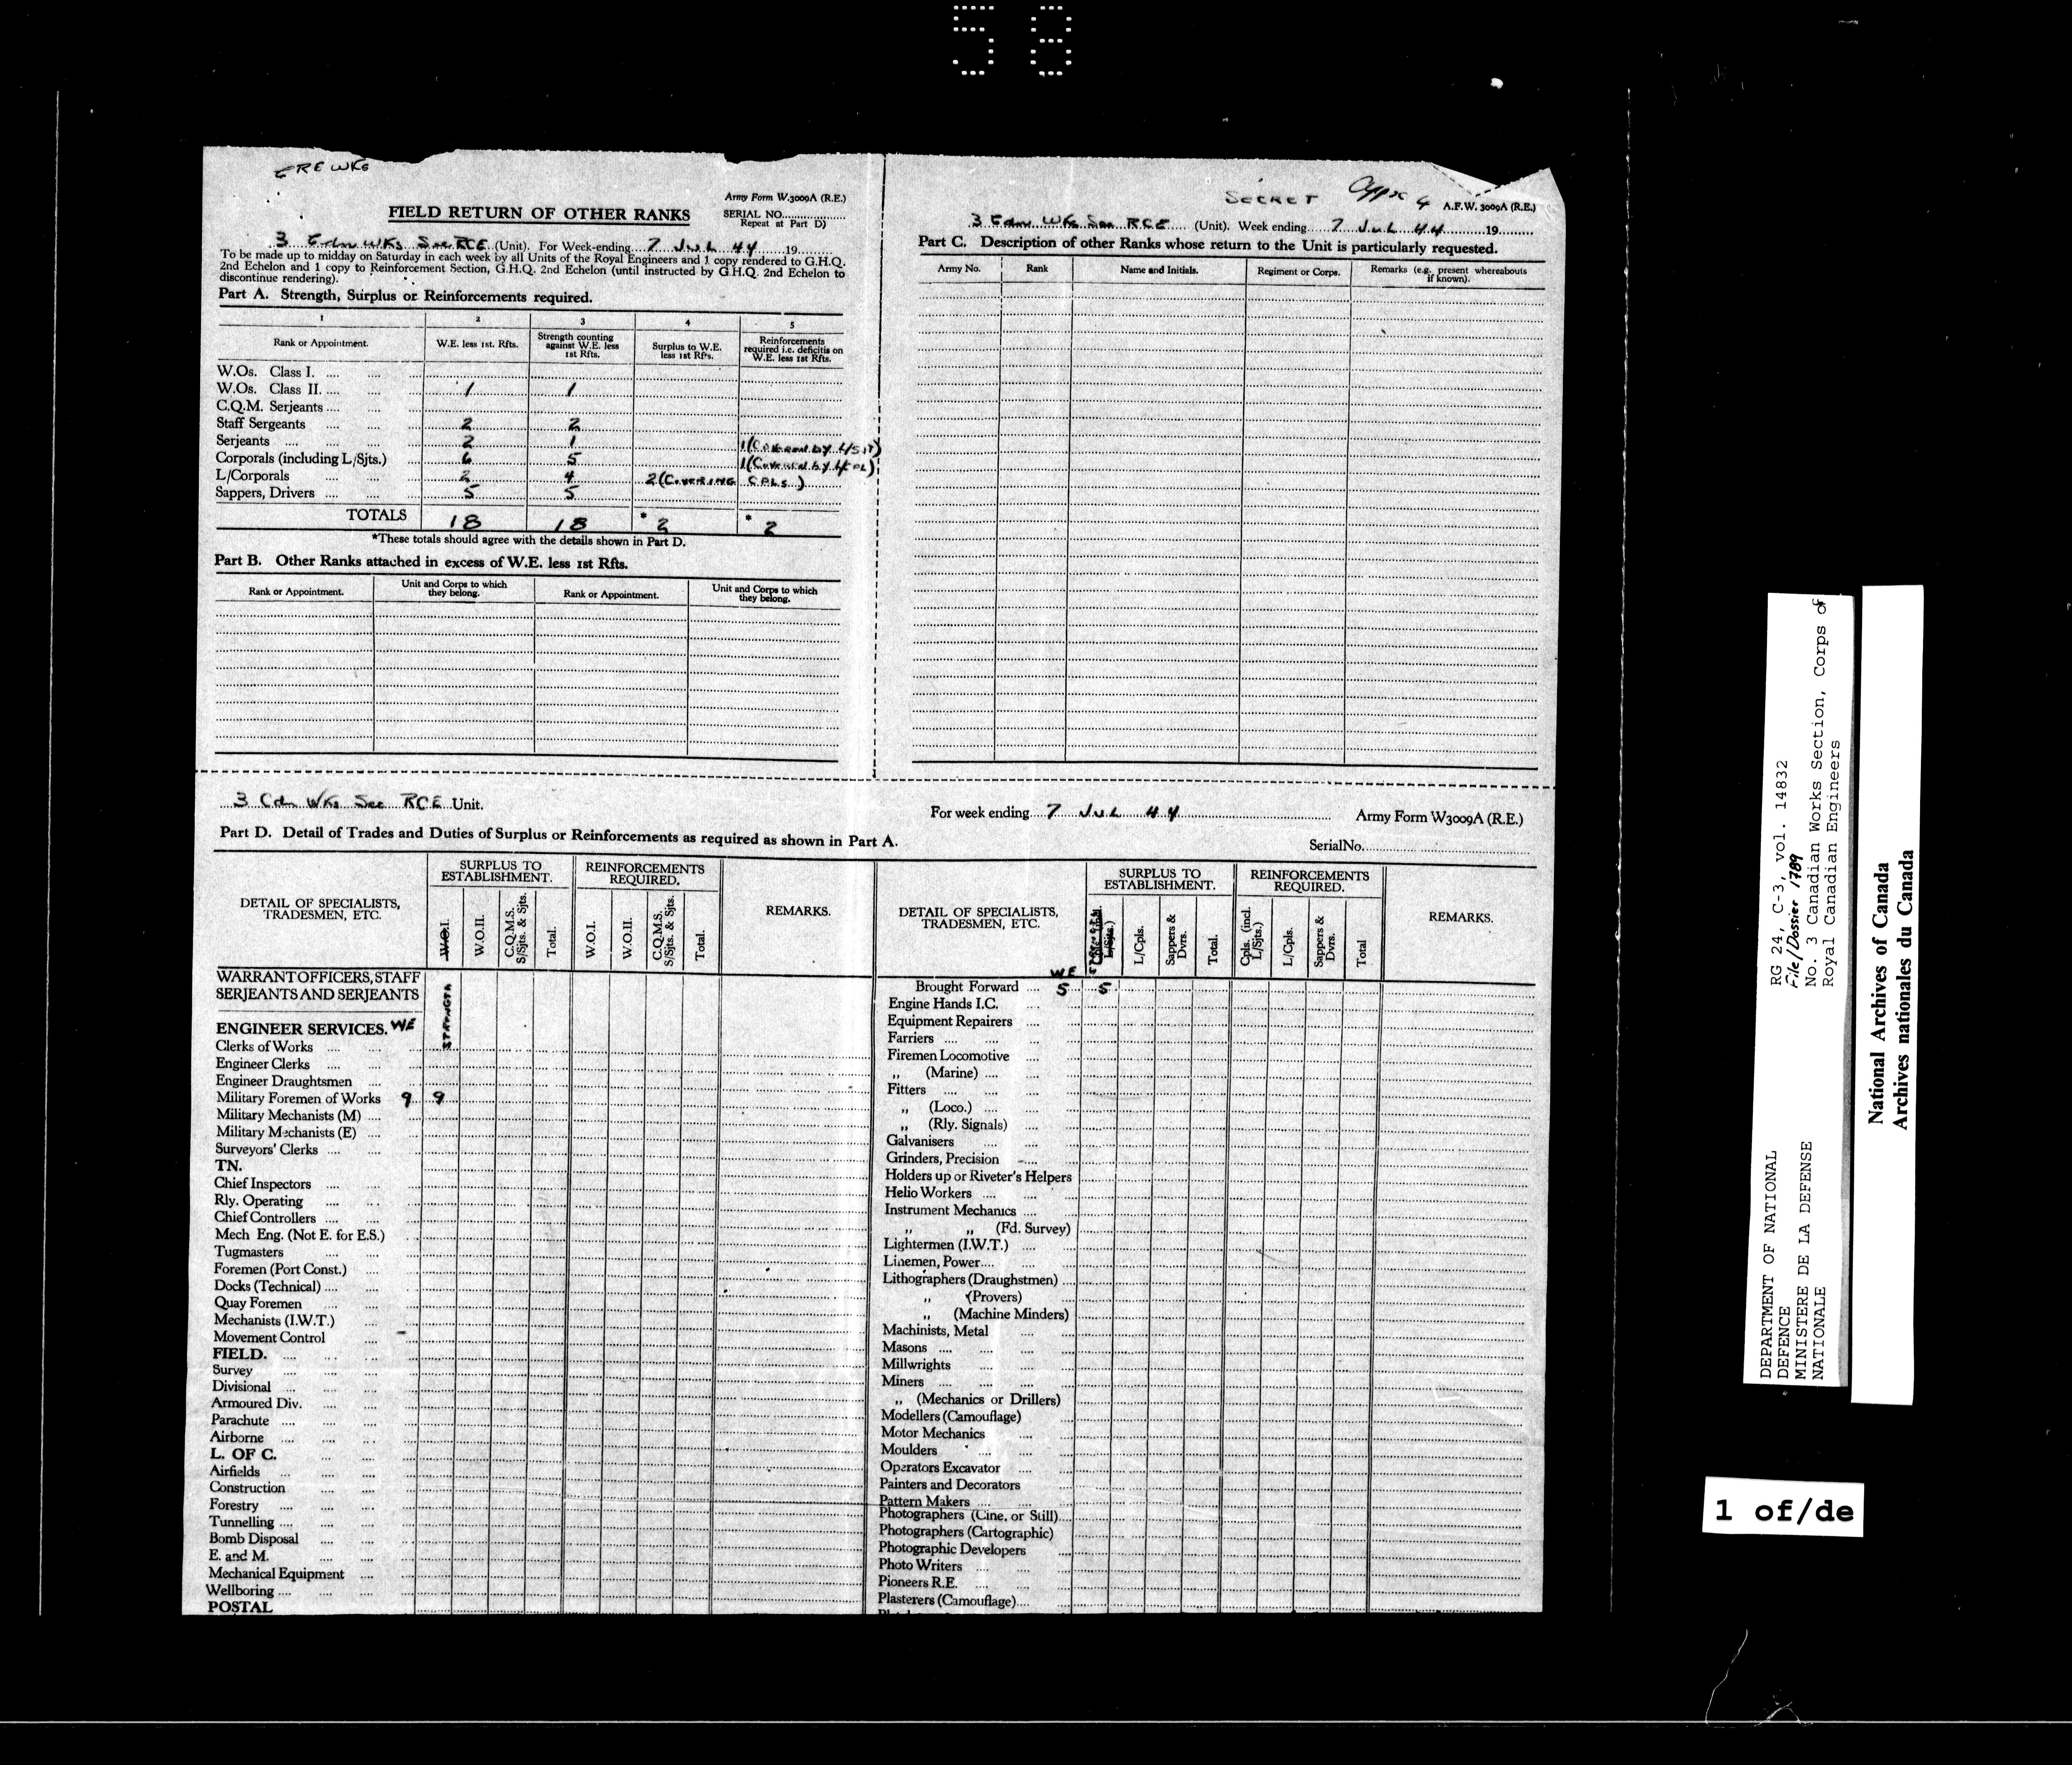 58
CRE WKS
Army Form W.3009A (R.E.)
FIELD RETURN OF OTHER RANKS
SERIAL NO..................
Repeat at Part D)
3 Cdn WKs Sec RCE (Unit). For Week-ending 7 JUL 44 19.........
To be made up to midday on Saturday in each week by all Units of the Royal Engineers and 1 copy rendered to G.H.Q.
2nd Echelon and 1 copy to Reinforcement Section, G.H.Q. 2nd Echelon (until instructed by G.H.Q. 2nd Echelon to
discontinue rendering).
Part A. Strength, Surplus or Reinforcements required.
1 2 3 4 5
Rank or Appointment. W.E. less 1st. Rfts. Strength counting against W.E. less 1st Rfts. Surplus to W.E. less 1st Rfts. Reinforcements required i.e. deficits on W.E. less 1st Rfts.
W.Os. Class I. ....
W.Os. Class II. .... 1 1
C.Q.M. Serjeants ....
Staff Sergeants .... 2 2
Serjeants .... 2 1 1 (Covered by L/SJT)
Corporals (including L/Sjts.) 6 5 1 (Covered by L/CPL)
L/Corporals .... 2 4 2 (COVERING CPLS)
Sappers, Drivers .... 5 5
TOTALS 18 18 * 2 * 2
*These totals should agree with the details shown in Part D.
Part B. Other Ranks attached in excess of W.E. less 1st Rfts.
Rank or Appointment. Unit and Corps to which they belong. Rank or Appointment. Unit and Corps to which they belong.
SECRET Appx 4 A.F.W. 3009A (R.E.)
3 Cdn WKs Sec RCE (Unit). Week ending 7 JUL 44 19.........
Part C. Description of other Ranks whose return to the Unit is particularly requested.
Army No. Rank Name and Initials. Regiment or Corps. Remarks (e.g. present whereabouts if known).
3 Cdn WKs Sec RCE Unit. For week ending 7 JUL 44 Army Form W3009A (R.E.)
Part D. Detail of Trades and Duties of Surplus or Reinforcements as required as shown in Part A.
SerialNo.
DETAIL OF SPECIALISTS, TRADESMEN, ETC.
SURPLUS TO ESTABLISHMENT.
REINFORCEMENTS REQUIRED.
REMARKS.
W.O.I. W.O.II. C.Q.M.S. S/Sjts. & Sjts. Total. W.O.I. W.O.II. C.Q.M.S. S/Sjts. & Sjts. Total.
WARRANT OFFICERS, STAFF
SERJEANTS AND SERJEANTS
STRENGTH
ENGINEER SERVICES. WE
Clerks of Works ....
Engineer Clerks ....
Engineer Draughtsmen ....
Military Foremen of Works 9 9
Military Mechanists (M) ....
Military Mechanists (E) ....
Surveyors' Clerks ....
TN.
Chief Inspectors ....
Rly. Operating ....
Chief Controllers ....
Mech Eng. (Not E. for E.S.)
Tugmasters ....
Foremen (Port Const.) ....
Docks (Technical) ....
Quay Foremen ....
Mechanists (I.W.T.) ....
Movement Control ....
FIELD. ....
Survey ....
Divisional ....
Armoured Div. ....
Parachute ....
Airborne ....
L. OF C. ....
Airfields ....
Construction ....
Forestry ....
Tunnelling ....
Bomb Disposal ....
E. and M. ....
Mechanical Equipment ....
Wellboring ....
POSTAL
DETAIL OF SPECIALISTS, TRADESMEN, ETC.
SURPLUS TO ESTABLISHMENT.
REINFORCEMENTS REQUIRED.
REMARKS.
STRENGTH L/Sjts.) L/Cpls. Sappers & Dvrs. Total. Cpls. (incl. L/Sjts.) L/Cpls. Sappers & Dvrs. Total
WE
Brought Forward .... 5 5
Engine Hands I.C.
Equipment Repairers ....
Farriers ....
Firemen Locomotive ....
,, (Marine) ....
Fitters ....
,, (Loco.) ....
,, (Rly. Signals) ....
Galvanisers ....
Grinders, Precision ....
Holders up or Riveter's Helpers
Helio Workers ....
Instrument Mechanics ....
,, ,, (Fd. Survey)
Lightermen (I.W.T.) ....
Linemen, Power....
Lithographers (Draughstmen) ....
,, (Provers)
,, (Machine Minders)
Machinists, Metal ....
Masons ....
Millwrights ....
Miners ....
,, (Mechanics or Drillers)
Modellers (Camouflage)
Motor Mechanics ....
Moulders ....
Operators Excavator ....
Painters and Decorators
Pattern Makers ....
Photographers (Cine, or Still)....
Photographers (Cartographic)
Photographic Developers ....
Photo Writers ....
Pioneers R.E. ....
Plasterers (Camouflage)....
DEPARTMENT OF NATIONAL
DEFENCE
MINISTERE DE LA DEFENSE
NATIONALE
RG 24, C-3, vol. 14832
File/Dossier 1789
No. 3 Canadian Works Section, Corps of
Royal Canadian Engineers
National Archives of Canada
Archives nationales du Canada
1 of/de